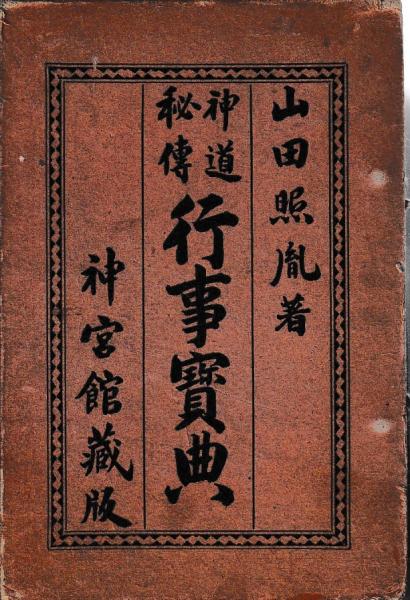 山田照胤著
神道
秘傳
行事寶典
神宮館藏版